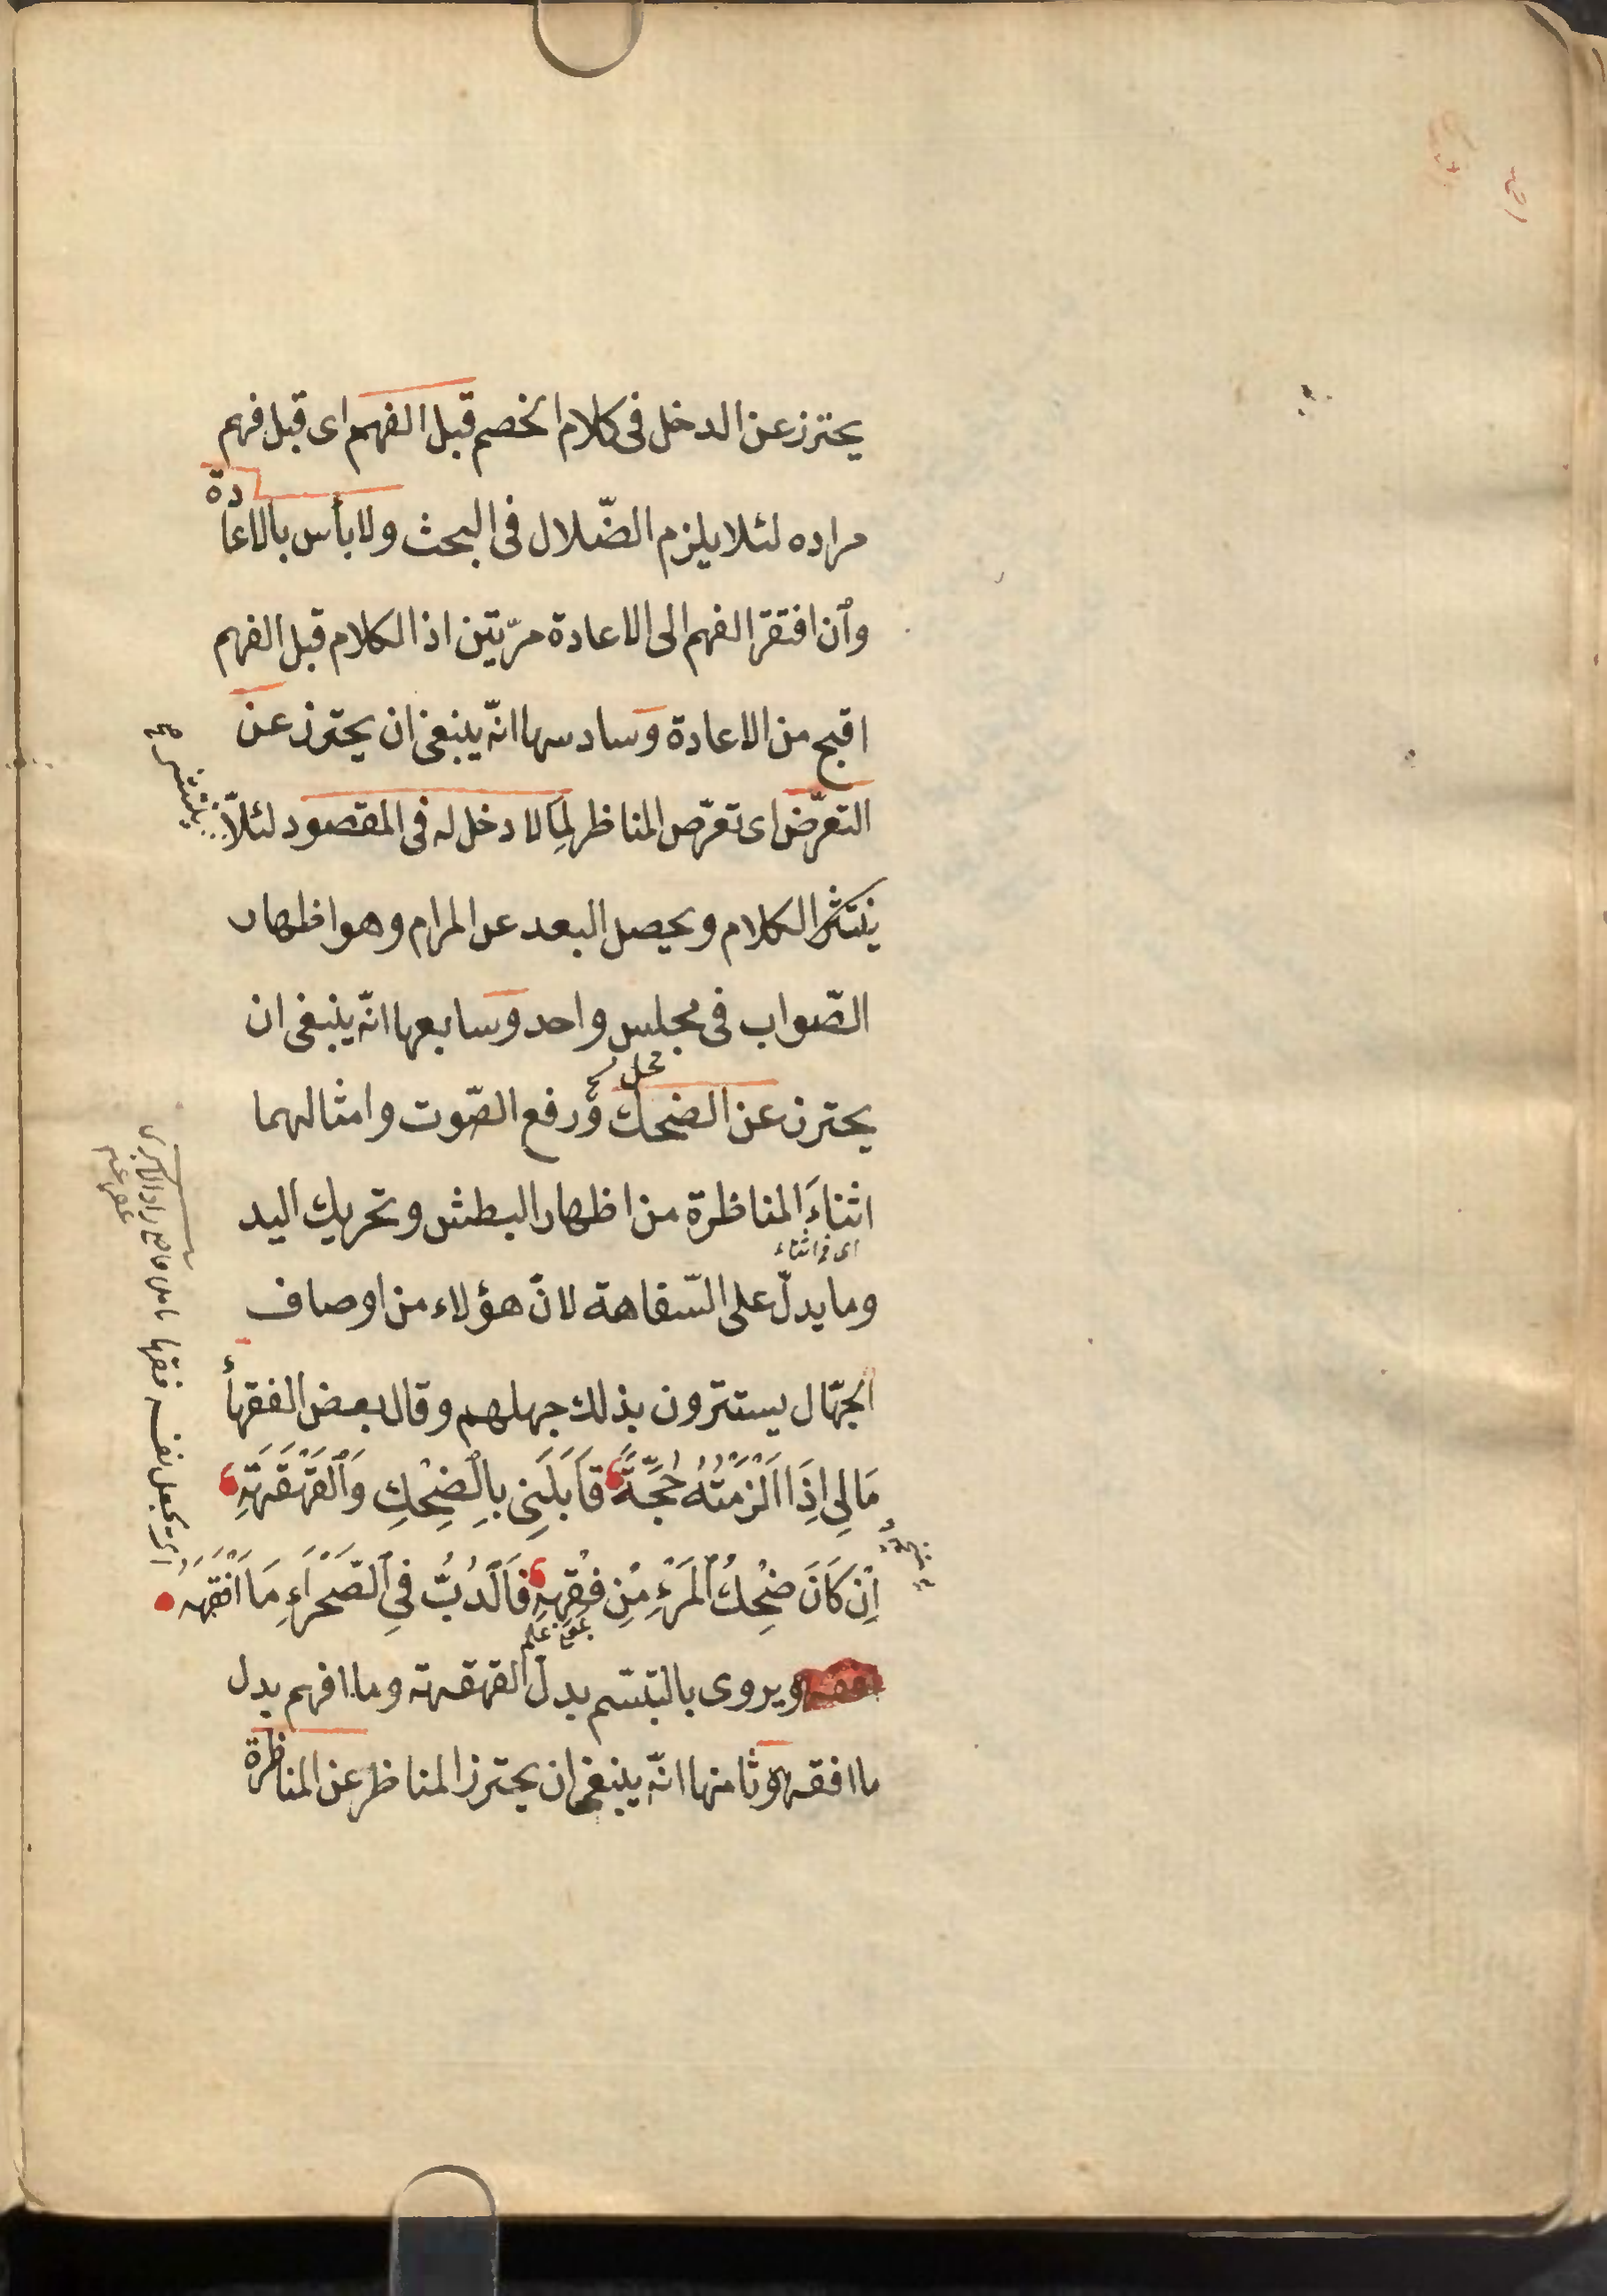 يحترز عن الدخل فى كلام الخصم قبل الفهم اى قبل فهم
مراده لئلا يلزم الضّلال فى البحث ولا بأس بالاعادة
وٱن افتقر الفهم الى الاعادة مرّتين اذ الكلام قبل الفهم
اقبح من الاعادة وسادسها انّه ينبغى ان يحترز عن
التعرّض اى تعرّض المناظر لِمَا لا دخل له فى المقصود لئلاّ
ينتشر الكلام ويحصل البعد عن المرام وهو اظهار
الصّواب فى مجلس واحد وسابعها انّه ينبغى ان
يحترز عن الضحك ورفع الصّوت وامثالهما
اثناءَ المناظرة من اظهار البطش وتحريك اليد
اى فى اثناء
وما يدلّ على السّفاهة لانّ هؤلاء من اوصاف
الجهّال يستترون بذلك جهلهم وقال بعض الفقهأ
مَالِى اِذَا اَلْزَمْتُهُ حُجَّةً قَابَلَنِى بِالضِحْكِ وَٱلْقَهْقَهَةِ
اِنْ كَانَ ضِحْكُ ٱلْمَرْءِ مِنْ فِقْهِهِ فَالدُبُّ فِى ٱلصَّحْرَاءِ مَا اَفْقَهَهُ
ويروى بالتبسّم بدل القهقهة وما افهم بدل
ما افقه وثامنها انّه ينبغى ان يحترز المناظر عن المناظرة